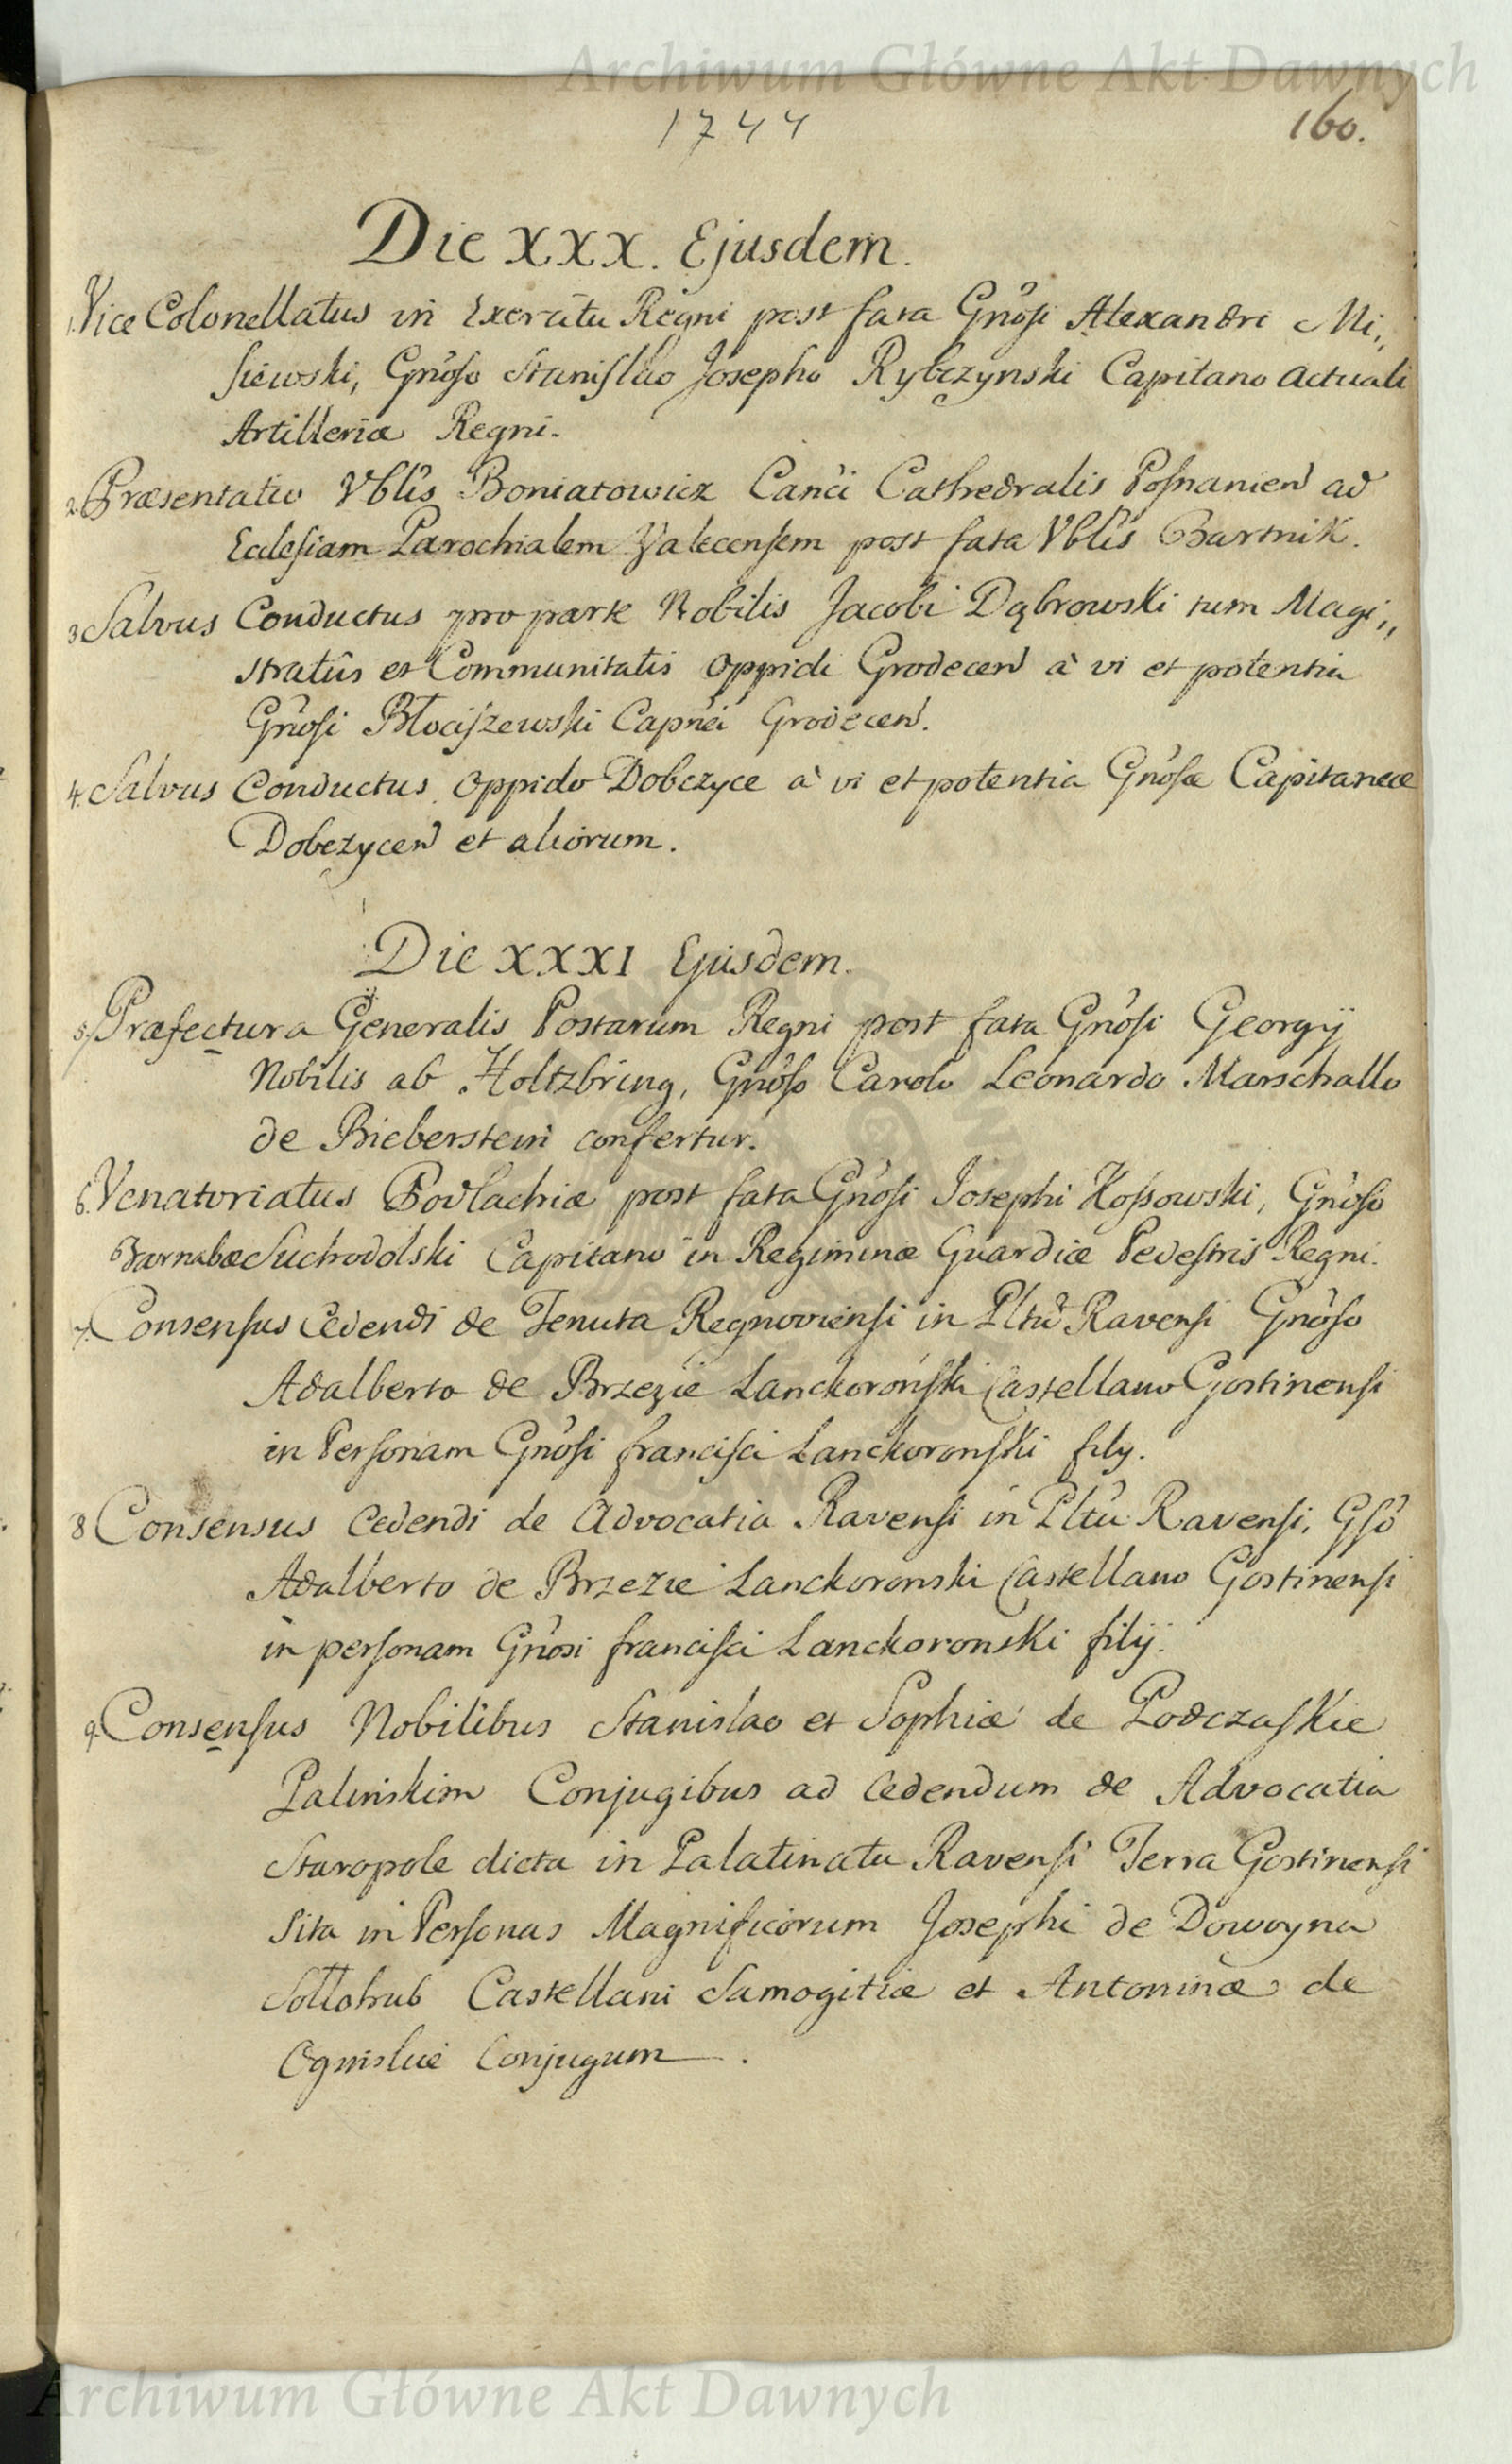 Archiwum Główne Akt Dawnych
1744
160.
Die XXX. Ejusdem.
1. Vice Colonellatus in Exercitu Regni post fata Gnosi Alexandri Mi,,
siewski, Gnoso Stanislao Josepho Rybczynski Capitano Actuali
Artilleriæ Regni.
2. Præsentatio Vblis Boniatowicz Canci Cathedralis Posnanien ad
Ecclesiam Parochialem Zalecensem post fata Vblis Bartnik.
3 Salvus Conductus pro parte Nobilis Jacobi Dąbrowski tum Magi,,
stratûs et Communitatis Oppidi Grodecen à vi et potentia
Gnosi Błociszewski Capnei Grodecen.
4. Salvus Conductus Oppido Dobczyce à vi et potentia Gnosæ Capitaneæ
Dobczycen et aliorum.
Die XXXI Ejusdem.
5. Præfectura Generalis Postarum Regni post fata Gnosi Georgij
Nobilis ab Holtzbring, Gnoso Carolo Leonardo Marschallo
de Bieberstein confertur.
6. Venatoriatus Podlachiæ post fata Gnosi Josephi Kossowski, Gnoso
Barnabæ Suchodolski Capitano in Regiminæ Guardiæ Pedestris Regni.
7. Consensus Cedendi de Tenuta Regnoviensi in Pltu Ravensi Gnoso
Adalberto de Brzezie Lanckoroński Castellano Gostinensi
in Personam Gnosi francisci Lanckoronski filij.
8 Consensus Cedendi de Advocatia Ravensi in Pltu Ravensi, Gso
Adalberto de Brzezie Lanckoronski Castellano Gostinensi
in personam Gnosi francisci Lanckoronski filij.
9. Consensus Nobilibus Stanislao et Sophiæ de Podczaskie
Palinskim Conjugibus ad Cedendum de Advocatia
Staropole dicta in Palatinatu Ravensi Terra Gostinensi
Sita in Personas Magnificorum Josephi de Dowoyna
Sołłohub Castellani Samogitiæ et Antoninæ de
Oginskie Conjugum.
Archiwum Główne Akt Dawnych